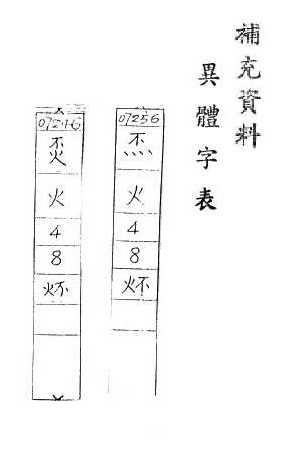 補充資料
異體字表
07256
炁
火
4
8
炋
07246
火
4
8
炋